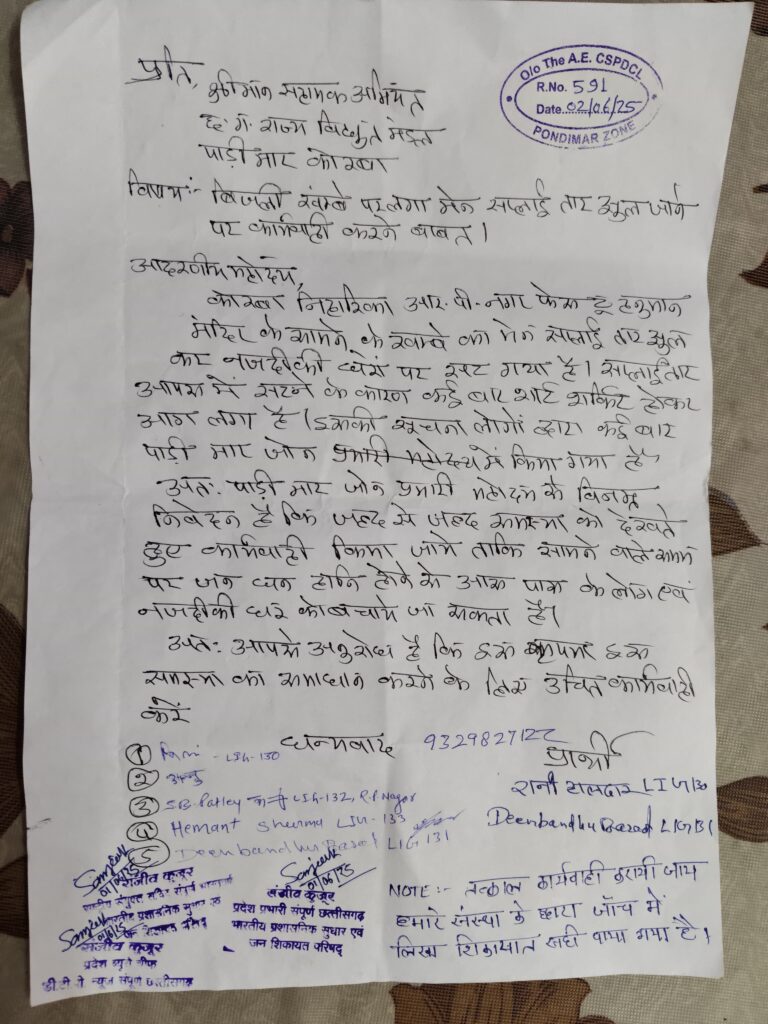 O/o The A.E. CSPDCL
R.No. 591
Date 02/06/25
PONDIMAR ZONE
प्रति,
श्रीमान सहायक अभियंता
छ.ग. राज्य विद्युत मंडल
पाड़ी मार कोरबा
विषय:- बिजली खंम्बे पर लगा मेन सप्लाई तार झुल जाने
पर कार्यवाही करने बाबत।
आदरणीय महोदय,
कोरबा निहारिका आर.पी.नगर फेस टू हनुमान
मंदिर के सामने के खम्बे का मेन सप्लाई तार झुल
कर नजदीकी घरों पर सट गया है। सप्लाई तार
आपस में सटने के कारण कई बार शार्ट शर्किट होकर
आग लगा है। इसकी सूचना लोगों द्वारा कई बार
पाड़ी मार जोन प्रभारी महोदय में किया गया है।
अतः पाड़ी मार जोन प्रभारी महोदय के विनम्र
निवेदन है कि जल्द से जल्द समस्या को देखते
हुए कार्यवाही किया जाये ताकि सामने वाले समय
पर जन धन हानि होने से आस पास के लोग एवं
नजदीकी घर को बचाये जा सकता है।
अतः आपसे अनुरोध है कि इस समस्या
का समाधान करने के लिए उचित कार्यवाही
करें
धन्यवाद 9329827122 प्रार्थी
① LIG-130
②
③ S.B. Patley LIG-132, R.P. Nagar
④ Hemant Sharma LIG-133
⑤ Deenbandhu LIG 131
रानी हालदार LIG/130
Deenbandhu LIG/131
Sanjeev
01/06/25
संजीव कुजूर
Sanjeev
संजीव कुजूर
प्रदेश ब्यूरो चीफ
डी.टी.वी. न्यूज संपूर्ण छत्तीसगढ़
Sanjeev
01/06/25
संजीव कुजूर
प्रदेश प्रभारी संपूर्ण छत्तीसगढ़
भारतीय प्रशासनिक सुधार एवं
जन शिकायत परिषद्
NOTE:- तत्काल कार्यवाही करायी जाय
हमारे संस्था के द्वारा जाँच में
लिखा शिकायत सही पाया गया है।